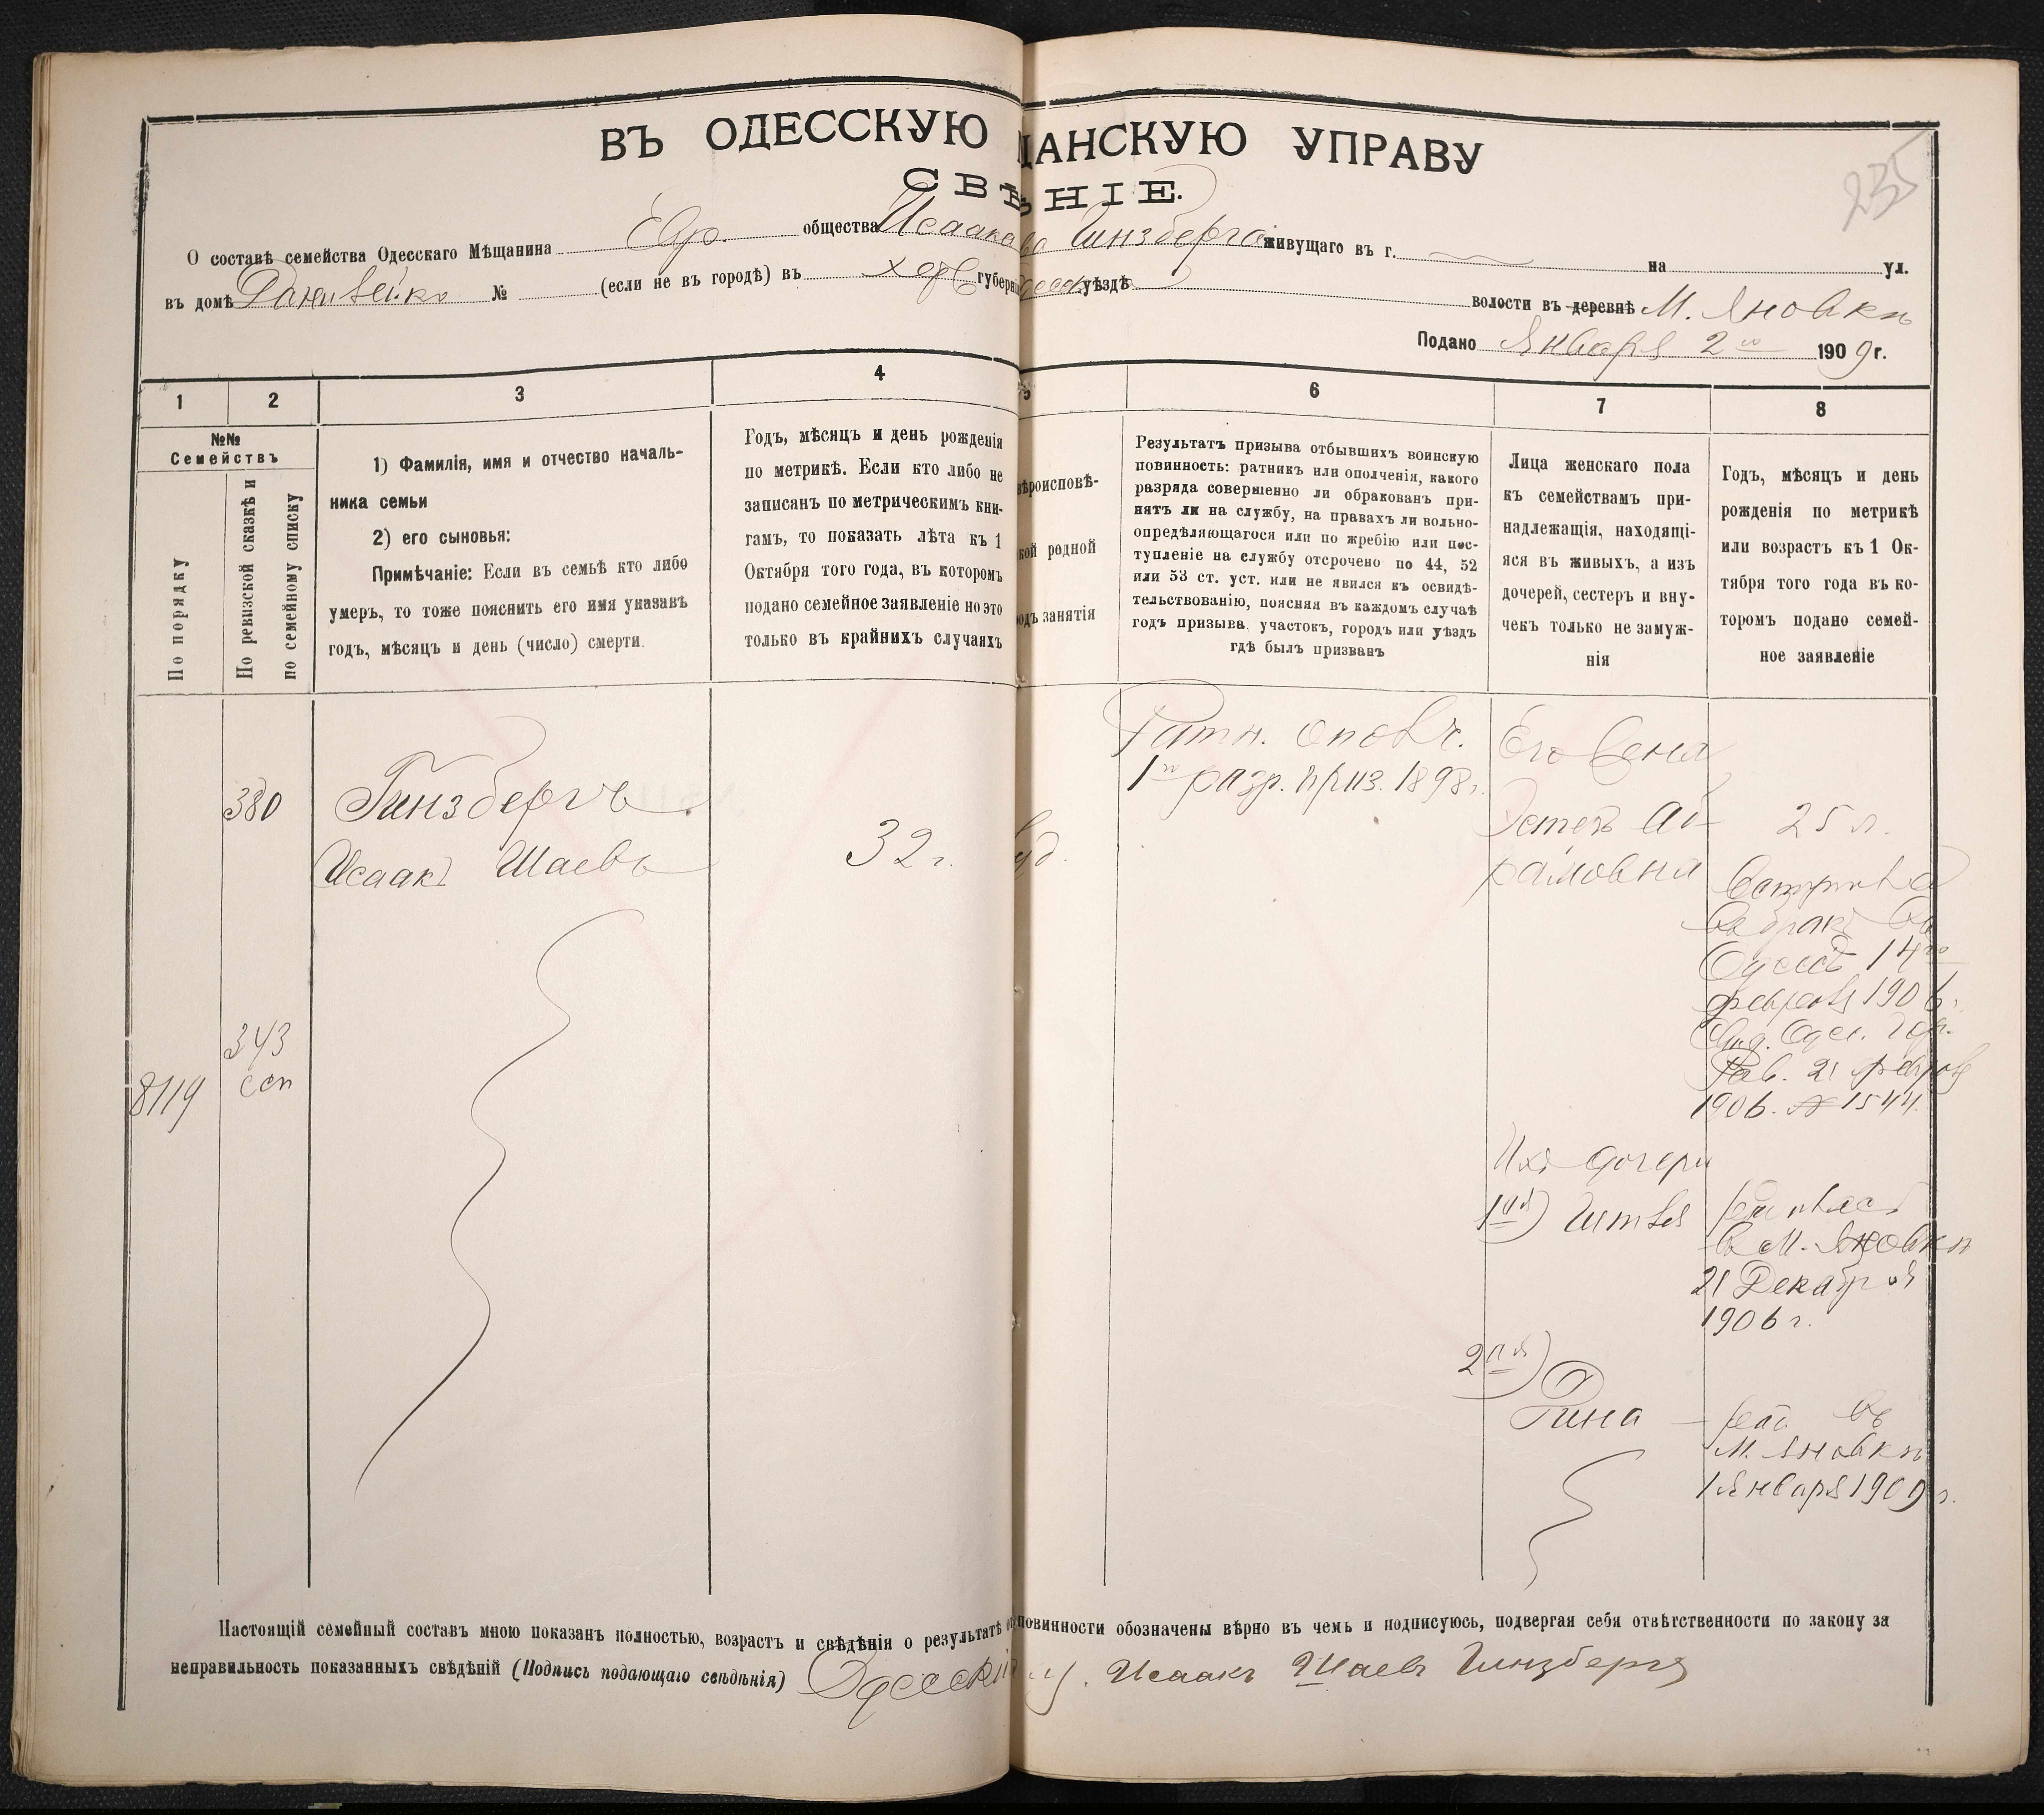 ВЪ ОДЕССКУЮ ЩАНСКУЮ УПРАВУ
СВѢ НІЕ.
235
О составѣ семейства Одесскаго Мѣщанина Евр. общества Исаака Гинзберга живущаго въ г. на ул.
въ домѣ № (если не въ городѣ) въ Херс губерніи Одесск уѣздѣ волости въ деревнѣ М. Яновкѣ
Подано Января 2го 1909 г.
1 2 3 4 5 6 7 8
№№
Семействъ
По порядку
По ревизской сказкѣ и
по семейному списку
1) Фамилія, имя и отчество началь-
ника семьи
2) его сыновья:
Примѣчаніе: Если въ семьѣ кто либо
умеръ, то тоже пояснить его имя указавъ
годъ, мѣсяцъ и день (число) смерти.
Годъ, мѣсяцъ и день рожденія
по метрикѣ. Если кто либо не
записанъ по метрическимъ кни-
гамъ, то показать лѣта къ 1
Октября того года, въ которомъ
подано семейное заявленіе но это
только въ крайнихъ случаяхъ
вѣроисповѣ-
кой родной
одъ занятія
Результатъ призыва отбывшихъ воинскую
повинность: ратникъ или ополченія, какого
разряда совершенно ли обракованъ при-
нятъ ли на службу, на правахъ ли вольно-
опредѣляющагося или по жребію или пос-
тупленіе на службу отсрочено по 44, 52
или 53 ст. уст. или не явился къ освидѣ-
тельствованію, поясняя въ каждомъ случаѣ
годъ призыва, участокъ, городъ или уѣздъ
гдѣ былъ призванъ
Лица женскаго пола
къ семействамъ при-
надлежащія, находящі-
яся въ живыхъ, а изъ
дочерей, сестеръ и вну-
чекъ только не замуж-
нія
Годъ, мѣсяцъ и день
рожденія по метрикѣ
или возрастъ къ 1 Ок-
тября того года въ ко-
торомъ подано семей-
ное заявленіе
380
Гинзбергъ
Исаакъ Шаевъ
32 г.
уд.
Ратн. ополч.
1го разр. приз. 1898 г.
Его жена
Эстеръ Аб-
рамовна
25 л.
Вступилъ
въ бракъ въ
Одессѣ 14го
февраля 1906 г.
Одес. Гор.
Рав. 21 февраля
1906. № 1544.
343
ссп
8119
Ихъ дочери
1ая) Гитля
родилась
въ М. Яновкѣ
21 Декабря
1906 г.
2ая)
Рина
род въ
М. Яновкѣ
1 Января 1909 г.
Настоящій семейный составъ мною показанъ полностью, возрастъ и свѣдѣнія о результатѣ от повинности обозначены вѣрно въ чемъ и подписуюсь, подвергая себя отвѣтственности по закону за
неправильность показанныхъ свѣдѣній (Подпись подающаго свѣдѣнія) Одесскій м. Исаакъ Шаевъ Гинзбергъ